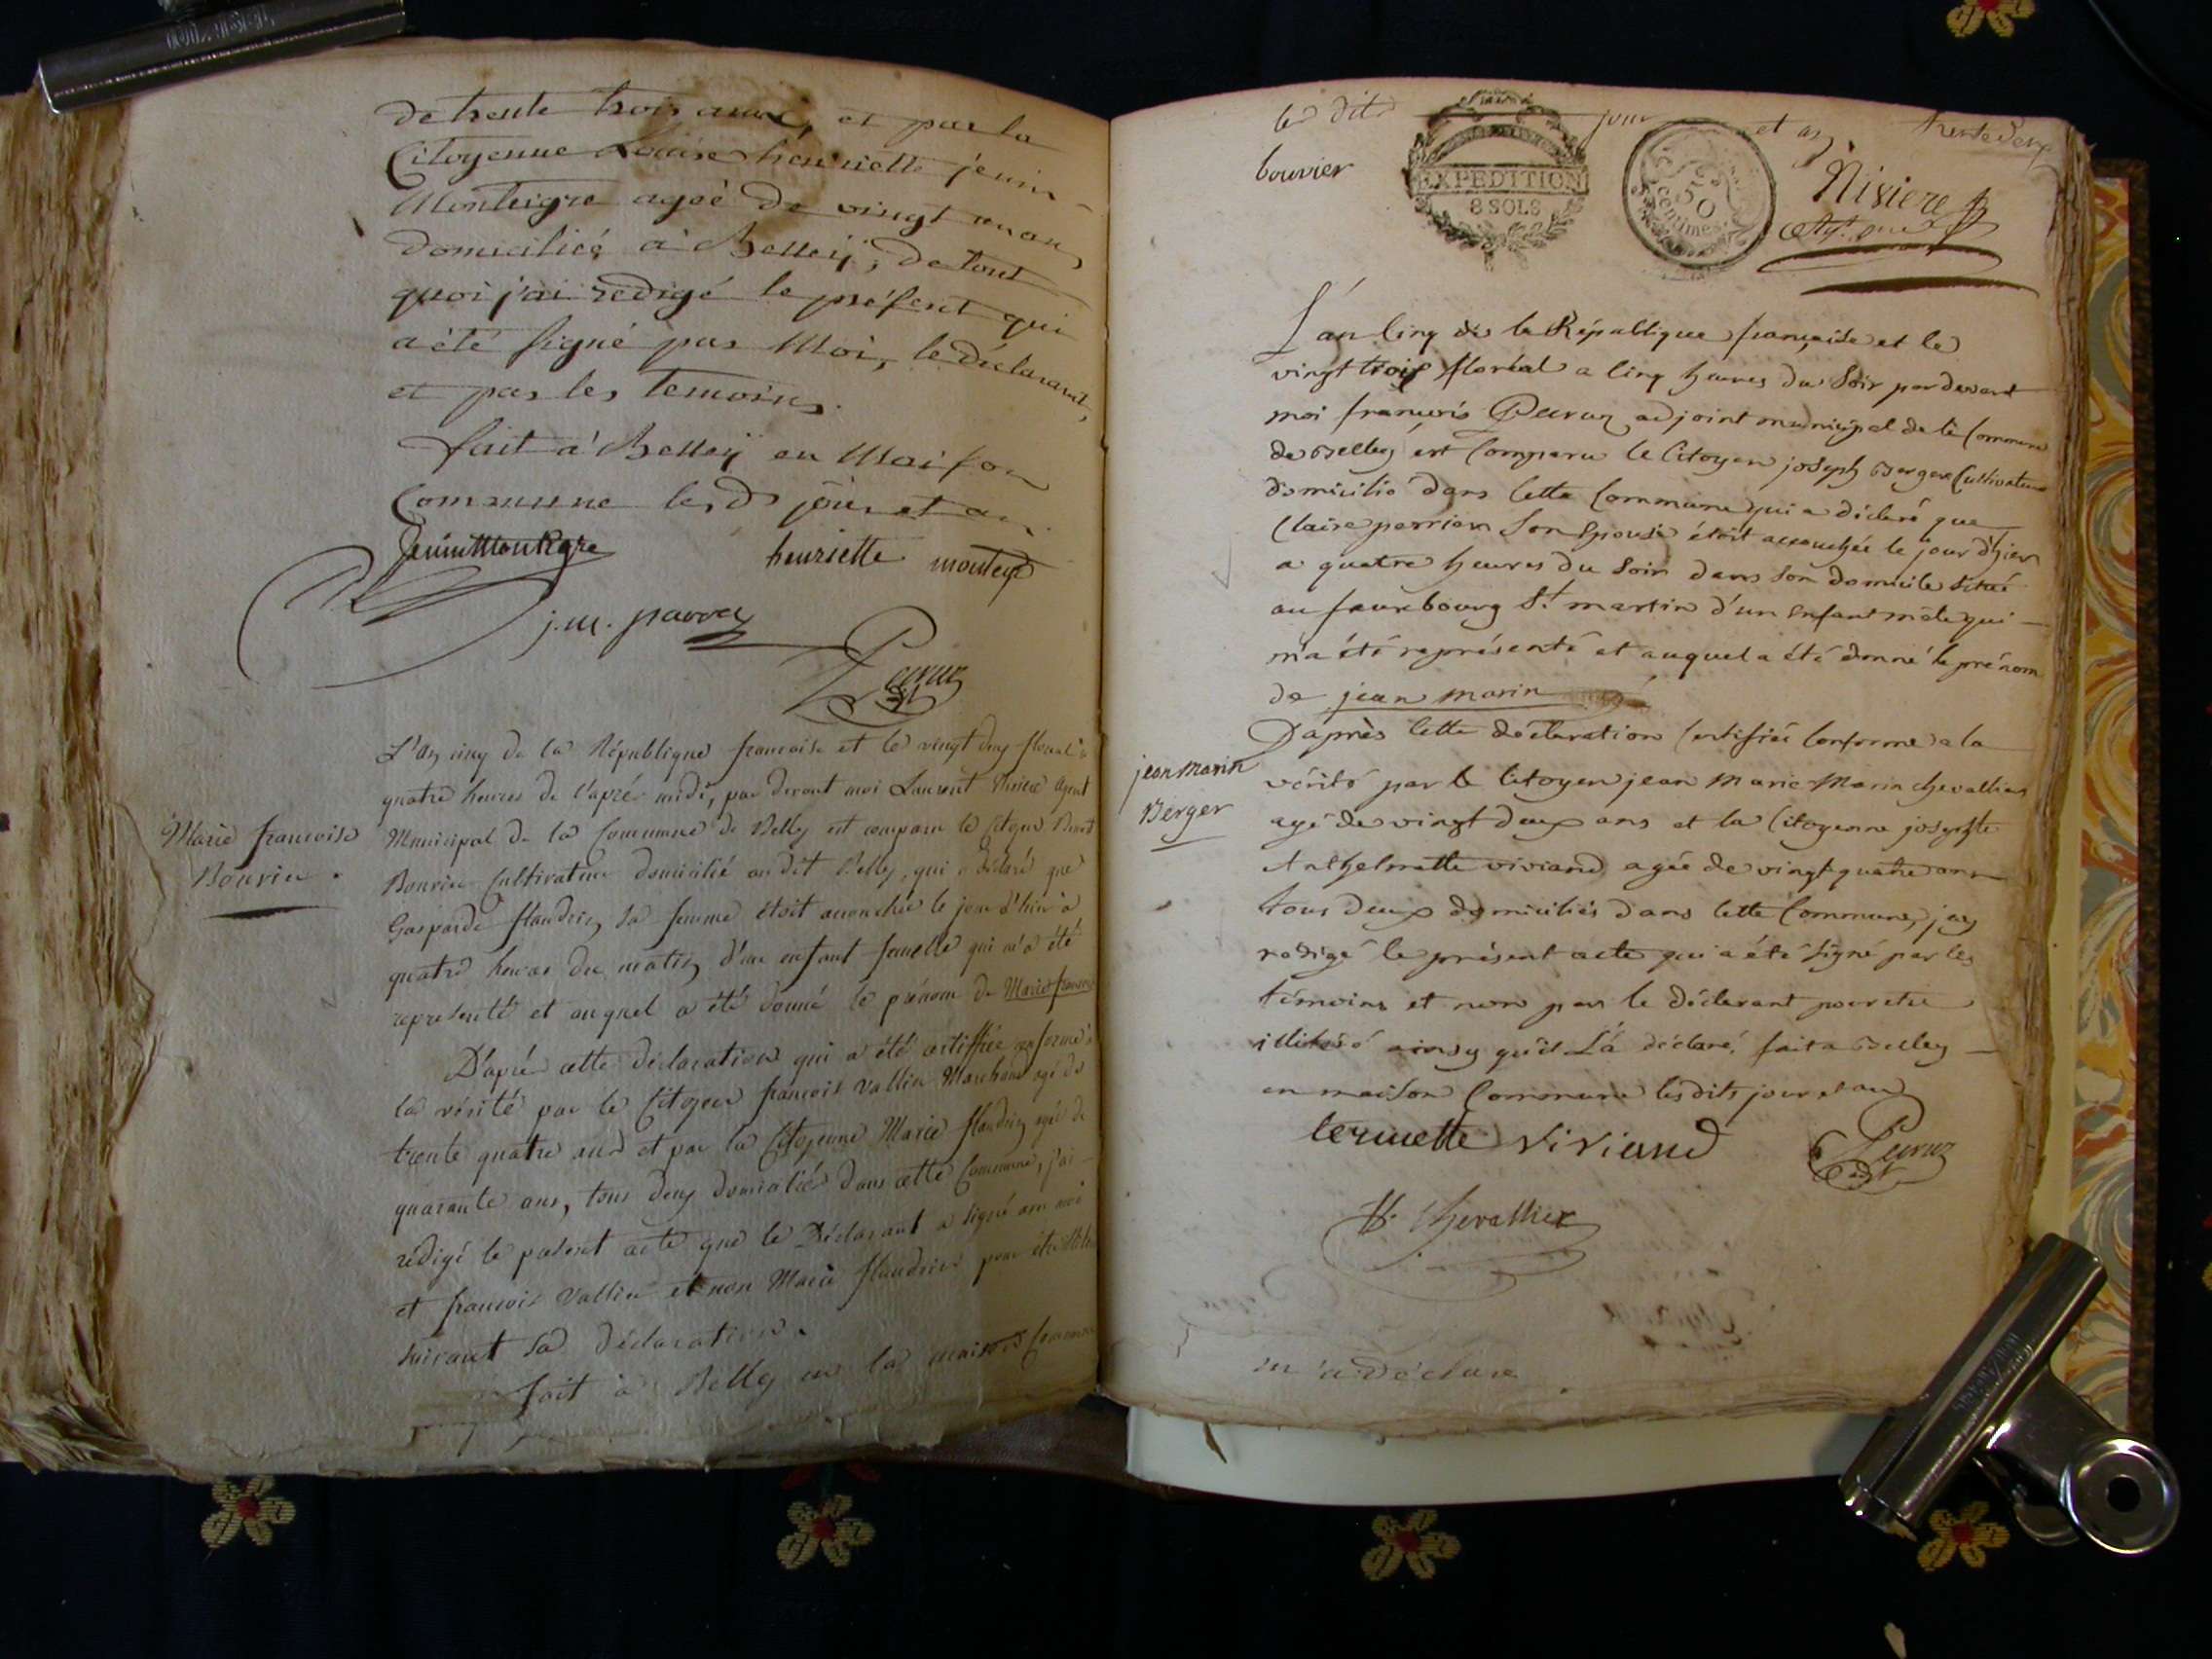 de trente trois ans, et par la
Citoyenne Louise henriette jenin
Monteigre agée de vingt un an
domiciliée à Belleÿ, de tout
quoi j'ai redigé le présent qui
a été signé par Moi, le déclarant,
et par les temoins.
fait à Belleÿ en Maison
Commune les d. jour et an.
henriette monteigre
Peuruz
L'an cinq de la République francoise et le vingt deux floreal à
quatre heures de l'après midi, par devant moi Laurent Nivière agent
Municipal de la Commune de Belley est comparu le Citoyen
Bouvier Cultivateur domicilié au dit Belley, qui a déclaré que
Gasparde flandrin, sa femme étoit accouchée le jour d'hier à
quatre heures du matin, d'un enfant femelle qui m'a été
representé et auquel a été donné le prénom de Marie francoise
Marie francoise
Bouvier.
D'après cette déclaration qui a été certiffiée conforme à
la vérité par le Citoyen françois Vallin Marchand agé de
trente quatre ans et par la Citoyenne Marie flandrin agée de
quarante ans, tous deux domiciliés dans cette Commune, j'ai
rédigé le présent acte que le Déclarant a signé avec moi
et francois Vallin et non Marie flandrin pour être illitérée
suivant sa déclaration.
fait à Belley en la maison Commune
les dits jour et an
bouvier
EXPEDITION
8 SOLS
50
Centimes
Nivière
L'an Cinq de la République française et le
vingt trois floréal a Cinq heures du Soir par devant
moi françois Peuruz adjoint municipal de la Commune
de Belley est Comparu le Citoyen joseph Berger Cultivateur
domicilié dans Cette Commune qui a déclaré que
Claire perrier Son Epouse étoit accouchée le jour d'hier
a quatre heures du Soir dans son domicile Situé
au fauxbourg St. martin d'un Enfant mâle qui
m'a été représenté et auquel a été donné le prénom
de jean marin
D'après Cette déclaration Certifiée Conforme a la
jean marin
Berger
vérité par le Citoyen jean Marie Marin chevallier
agé de vingt deux ans et la Citoyenne josephte
Anthelmette viviand agée de vingt quatre ans
tous deux domiciliés dans Cette Commune, jay
rédigé le présent acte qui a été Signé par les
témoins et non par le déclarant pour etre
illitéré ainsy qu'il L'a déclaré, fait a Belley
en maison Commune les dits jour et an
lermette viviand
Peuruz
adjt.
chevallier
m'a déclaré